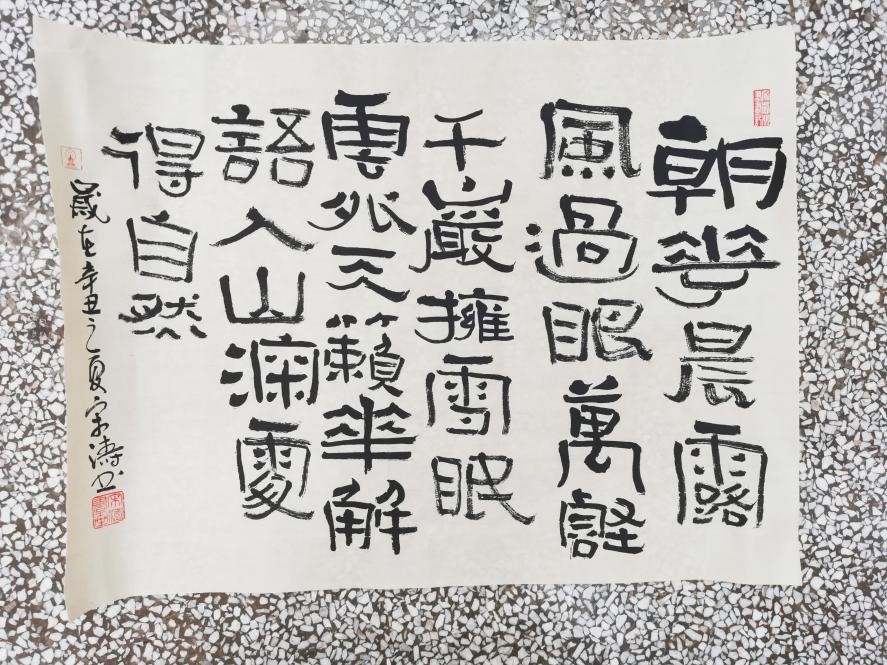 朝華晨露
風過眼萬壑
千巖擁雪眠
雲外天籟華解
語入山深處
得自然
歲在辛丑之夏宋濤書